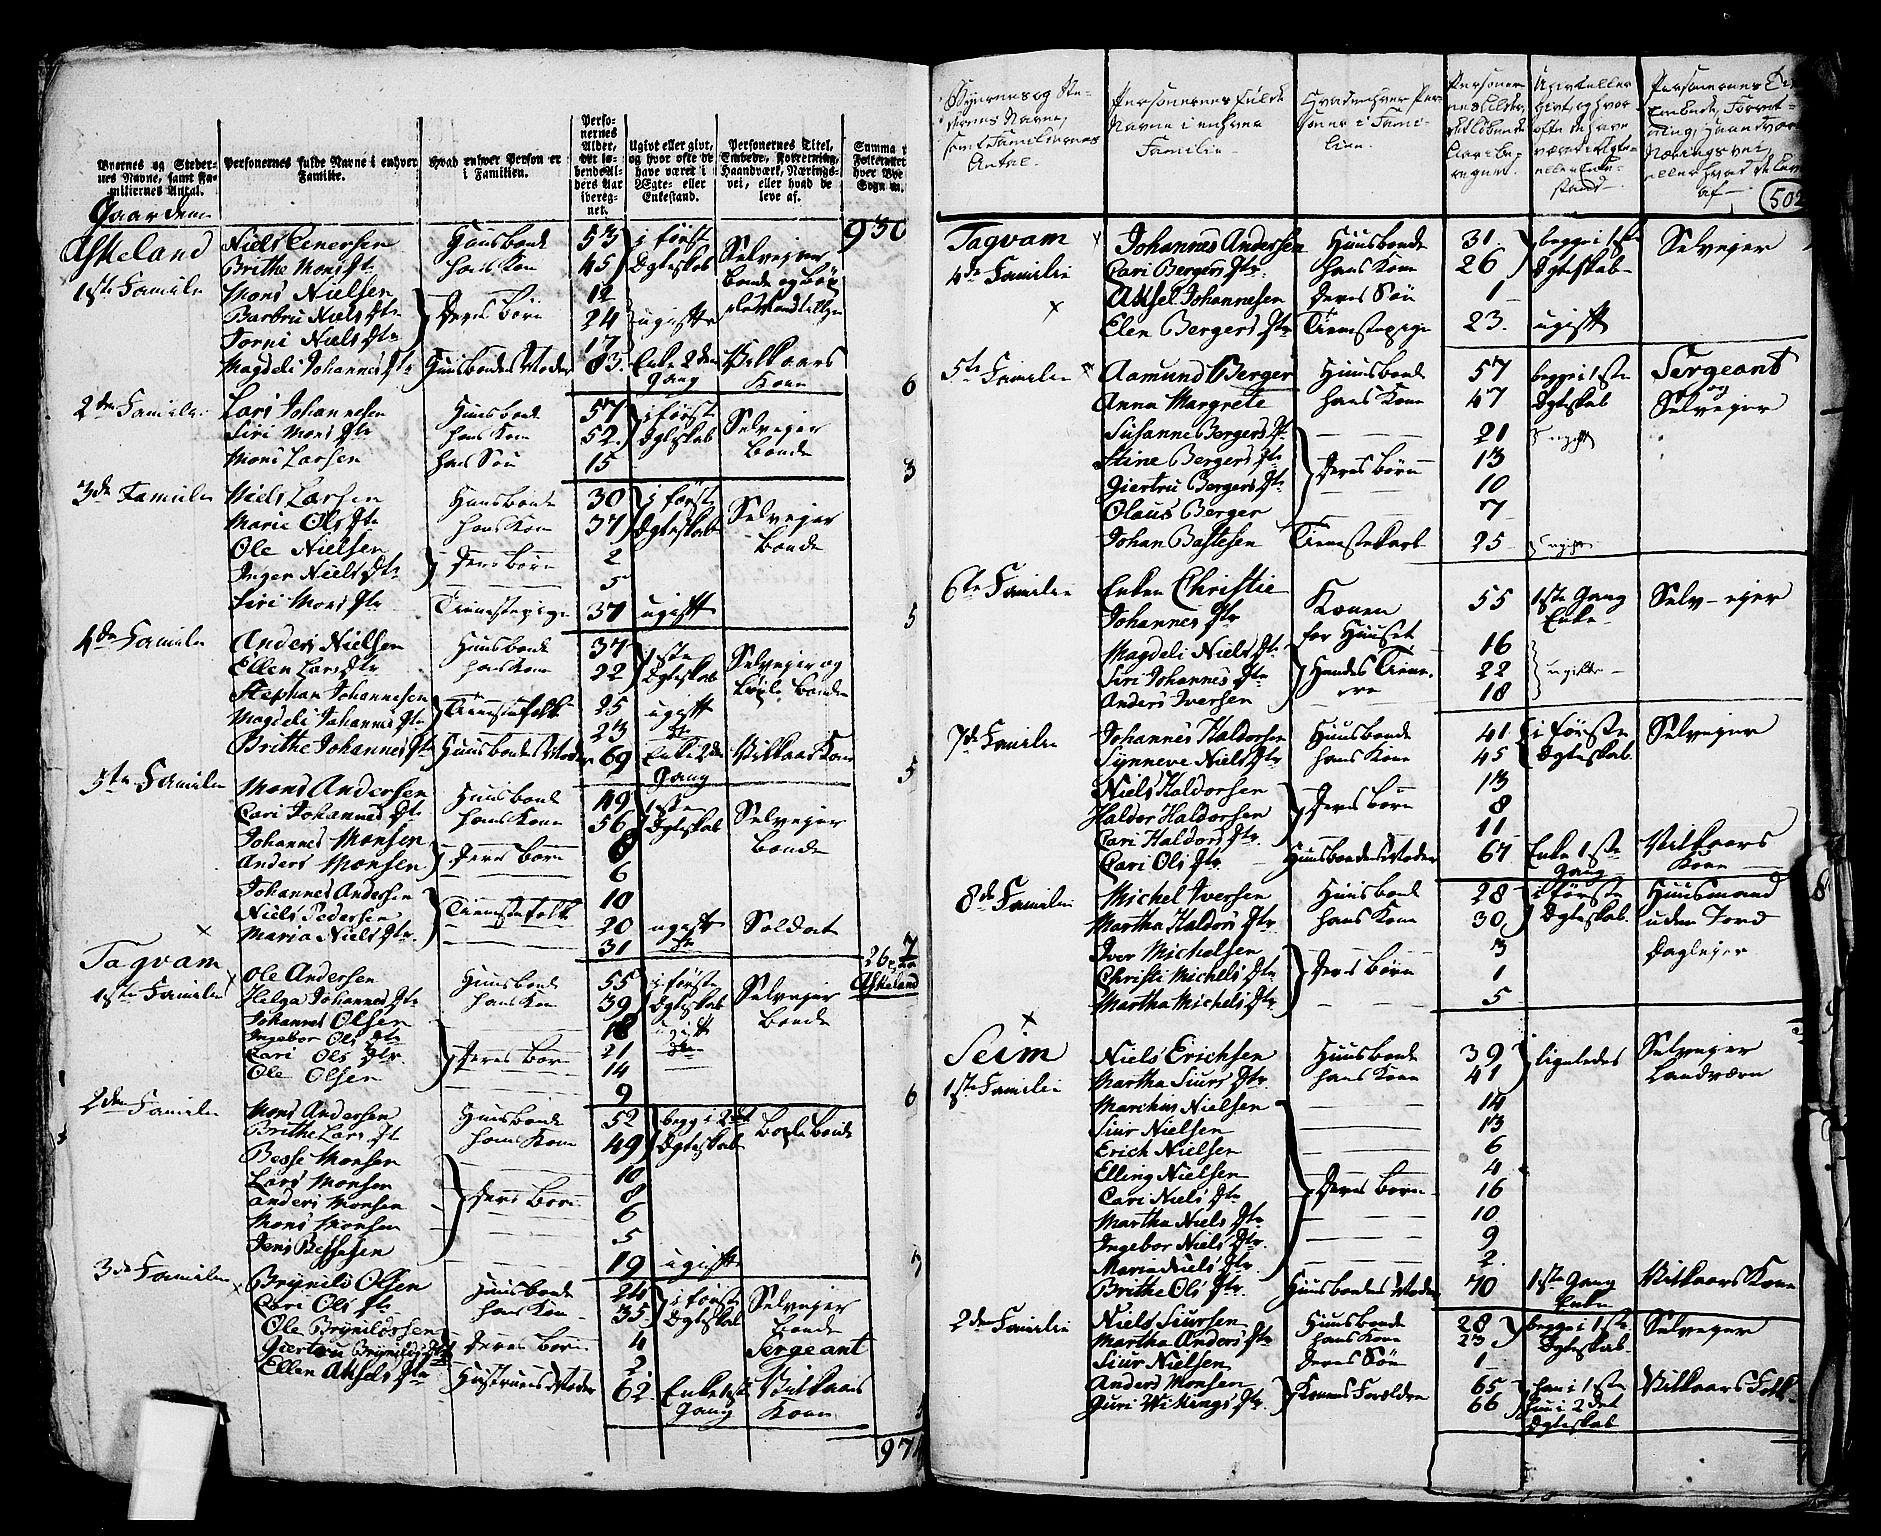 Byernes og Steder-
nes Navne, samt Fa-
miliernes Antal.
Personernes fulde Navne i enhver
Familie.
Hvad enhver Person er
i Familien.
Perso-
nernes
Alder,
det lø-
bende Al-
ders Aar
iberegnet.
Ugivt eller givt,
og hvor ofte de
have været i
Ægte- eller
Enkestand.
Personernes Titel,
Embede, Forretning,
Haandværk, Nærings-
vei, eller hvad de
leve af.
Gaardene
930
Askeland Niels Eenersen Huusbonde 53 i først Selvejer
1ste Famile Brithe Mons Dtr hans Kone 45 Ægteskab Bonde og
Mons Nielsen 12
Barbru Niels Dtr Deres børn 24 ugifte
Torni Niels Dtr 17
Magdeli Johannes Dtr Huusbondes Moder 83 Enke 2den Gang Vilkaars Kone 6
2den Familie Lars Johannesen Huusbonde 57 i først Selvejer
Siri Mons Dtr hans Kone 52 Ægteskab Bonde
Mons Larsen hans Søn 15 3
3de Familie Niels Larsen Huusbonde 30 i først Selvejer
Marie Ols Dtr hans Kone 37 Ægteskab Bonde
Ole Nielsen Deres børn 2
Inger Niels Dtr 5
Siri Mons Dtr Tienestepige 37 ugift 5
4de Familie Anders Nielsen Huusbonde 37 1ste Selvejer og
Ellen Lars Dtr hans Kone 22 Ægteskab Bonde
Stephan Johannesen Tienestefolk 25 ugift
Magdeli Johannes Dtr 23
Brithe Johannes Dtr Huusbondes Moder 69 Enke 2den Gang Vilkaars Kone 5
5te Familie Mons Andersen Huusbonde 49 1ste Selvejer
Cari Johannes Dtr hans Kone 56 Ægteskab Bonde
Johannes Monsen Deres børn 8
Anders Monsen 6
Johannes Andersen Tienestefolk 10
Niels Pedersen 20 ugift Soldat
Maria Niels Dtr 31 7
26 paa
Askeland
Tagvam
1ste Familie Ole Andersen Huusbonde 55 i først Selvejer
Helga Johannes Dtr hans Kone 39 Ægteskab Bonde
Johannes Olsen 18 ugift
Ingebor Ols Dtr Deres børn 21
Cari Ols Dtr 14
Ole Olsen 9 6
2den Familie Mons Andersen Huusbonde 52 begg i 2det
Brithe Lars Dtr hans Kone 49 Ægteskab
Besse Monsen 10
Lars Monsen Deres børn 8
Anders Monsen 6
Mons Monsen 5
Jens Bessesen 19 ugift 7
3de Familie Brynild Olsen Huusbonde 24 i først Selvejer
Cari Ols Dtr hans Kone 35 Ægteskab Bonde
Ole Brynildsen Deres børn 4 Sergeant
Giertru Brynilds Dtr 2
Ellen Aksels Dtr Hustruens Moder 62 Enke 1ste Gang Vilkaars Kone
Byernes og Ste-
dernes Navne,
samt Familiernes
Antal.
Personernes fulde
Navne i enhver
Familie.
Hvad enhver Per-
son er i Fami-
lien.
502
Tagvam Johannes Andersen Huusbonde 31 begge i 1ste Selvejer
4de Familie Cari Bergers Dtr hans Kone 26 Ægteskab
Aksel Johannesen Deres Søn 1
Elen Bergers Dtr Tienestepige 23 ugift
5te Familie Aamund Berger Huusbonde 57 begge i 1ste Sergeant
Anna Margrete hans Kone 47 Ægteskab og Selvejer
Susanne Bergers Dtr 21 ugift
Stine Bergers Dtr Deres børn 13
Giertru Bergers Dtr 10
Olaus Berger 7
Johan Bastesen Tienestekarl 25 ugift
6te Familie Enken Christie Konen 55 1ste Gang Selv-ejer
Johannes Dtr for Huuset Enke
Magdeli Niels Dtr 16
Siri Johannes Dtr Hendes Tiene- 22 ugifte
Anders Iversen re 18
7de Familie Johannes Haldorsen Huusbonde 41 i første Selvejer
Synneve Niels Dtr hans Kone 45 Ægteskab
Niels Haldorsen 13
Haldor Haldorsen Deres børn 8
Cari Haldors Dtr 11
Cari Ols Dtr Huusbondes Moder 67 Enke 1ste Gang Vilkaars Kone
8de Familie Michel Iversen Huusbond 28 i første Huusmand
Martha Haldors Dtr hans Kone 30 Ægteskab uden Jord
Iver Michelsen 3 Daglejer
Christi Michels Dtr Deres børn 1
Martha Michels Dtr 5
Seim Niels Erichsen Huusbonde 39 ligeledes Selvejer
1ste Familie Martha Siurs Dtr hans Kone 41 Landværn
Marchus Nielsen 14
Siur Nielsen 13
Erich Nielsen 6
Elling Nielsen 4
Cari Niels Dtr Deres børn 16
Martha Niels Dtr 10
Ingebor Niels Dtr 9
Maria Niels Dtr 2
Brithe Ols Dtr Huusbondes Moder 70 1ste Gang Enke Vilkaars Kone
2de Familie Niels Siursen Huusbonde 28 begge i 1ste Selvejer
Martha Anders Dtr hans Kone 23 Ægteskab
Siur Nielsen Deres Søn 1
Anders Monsen Konens Forældre 65 han i 1ste Vilkaars Folk
Guri Wikings Dtr 66 hun i 2det
Ægteskab